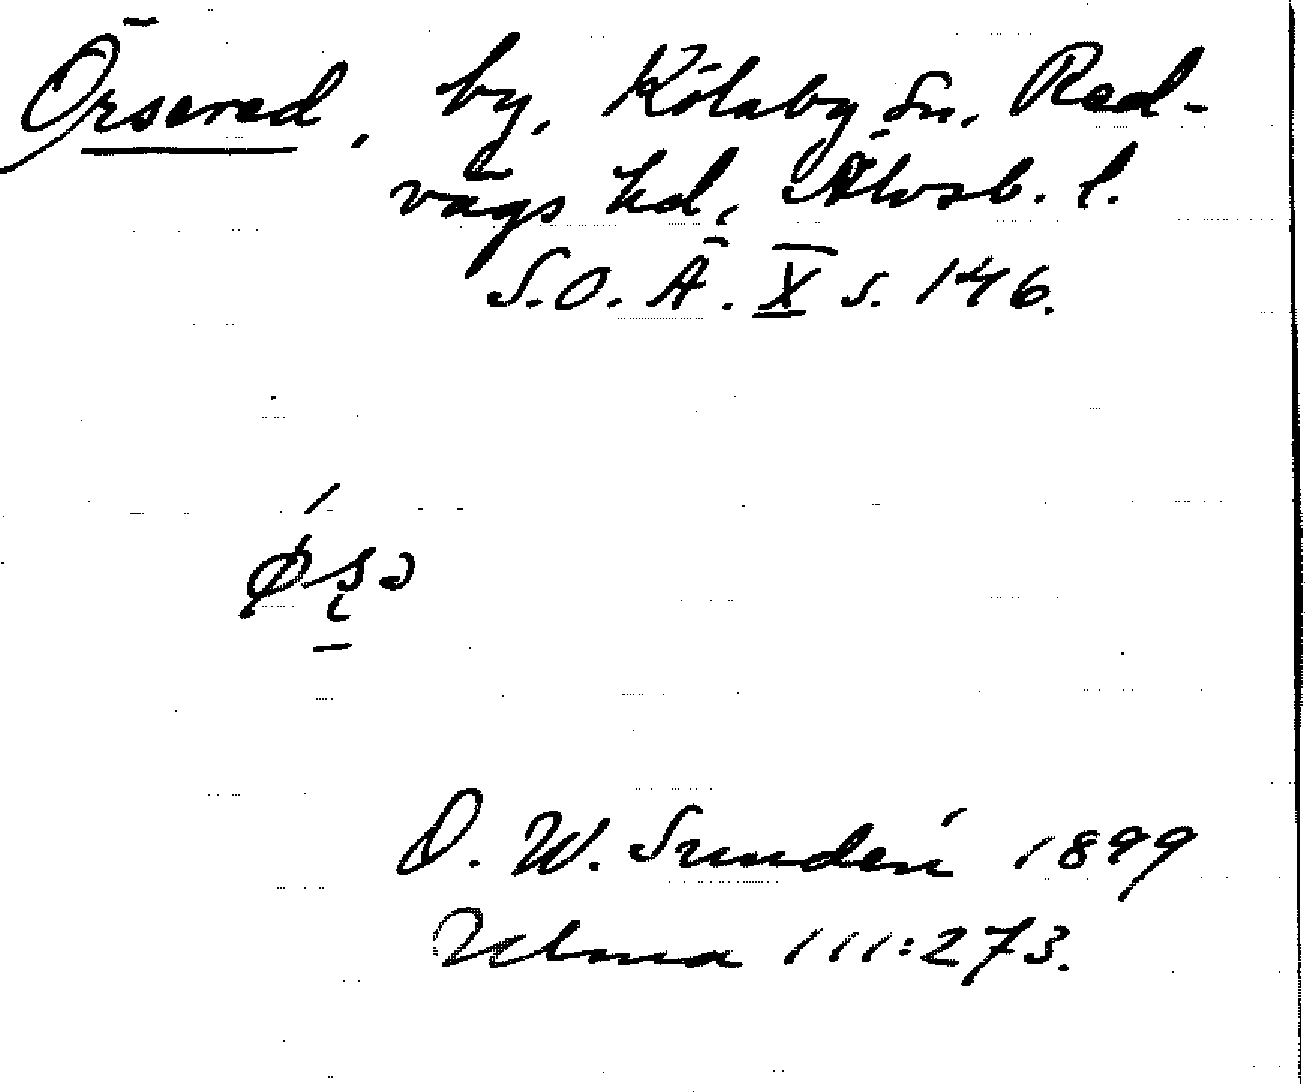 Örsered, by, Kölaby sn, Red-
vägs hd, Älvsb. l.
S.O.Ä. X s. 146.
D. W. Sundén 1899
Ulma 111:273.